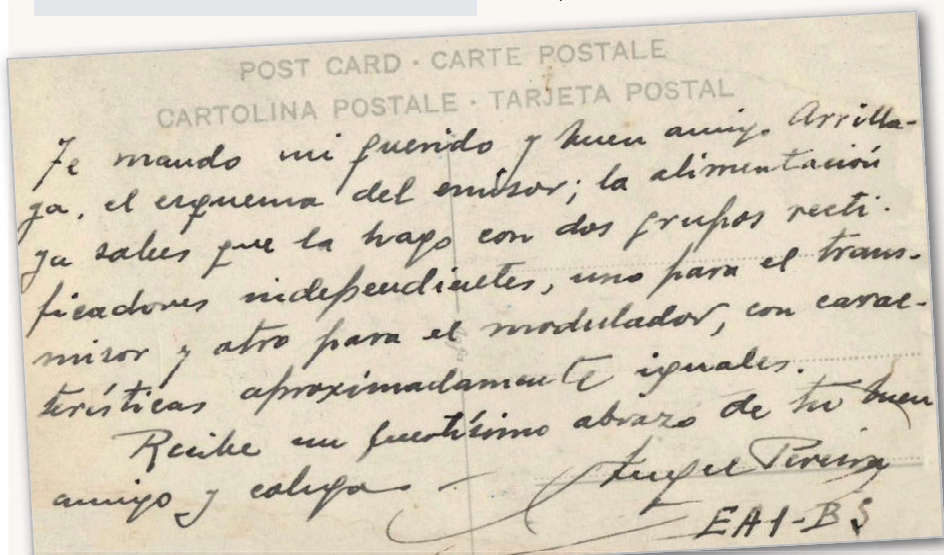 POST CARD · CARTE POSTALE
CARTOLINA POSTALE · TARJETA POSTAL
Te mando mi querido y buen amigo Arrilla-
ga, el esquema del emisor; la alimentación
ya sabes que la hago con dos grupos recti-
ficadores independietes, uno para el trans-
misor y otro para el modulador, con carac-
terísticas aproximadamente iguales.
Recibe un fuertísimo abrazo de tu buen
amigo y colega
Angel Pereira
EA1-BS